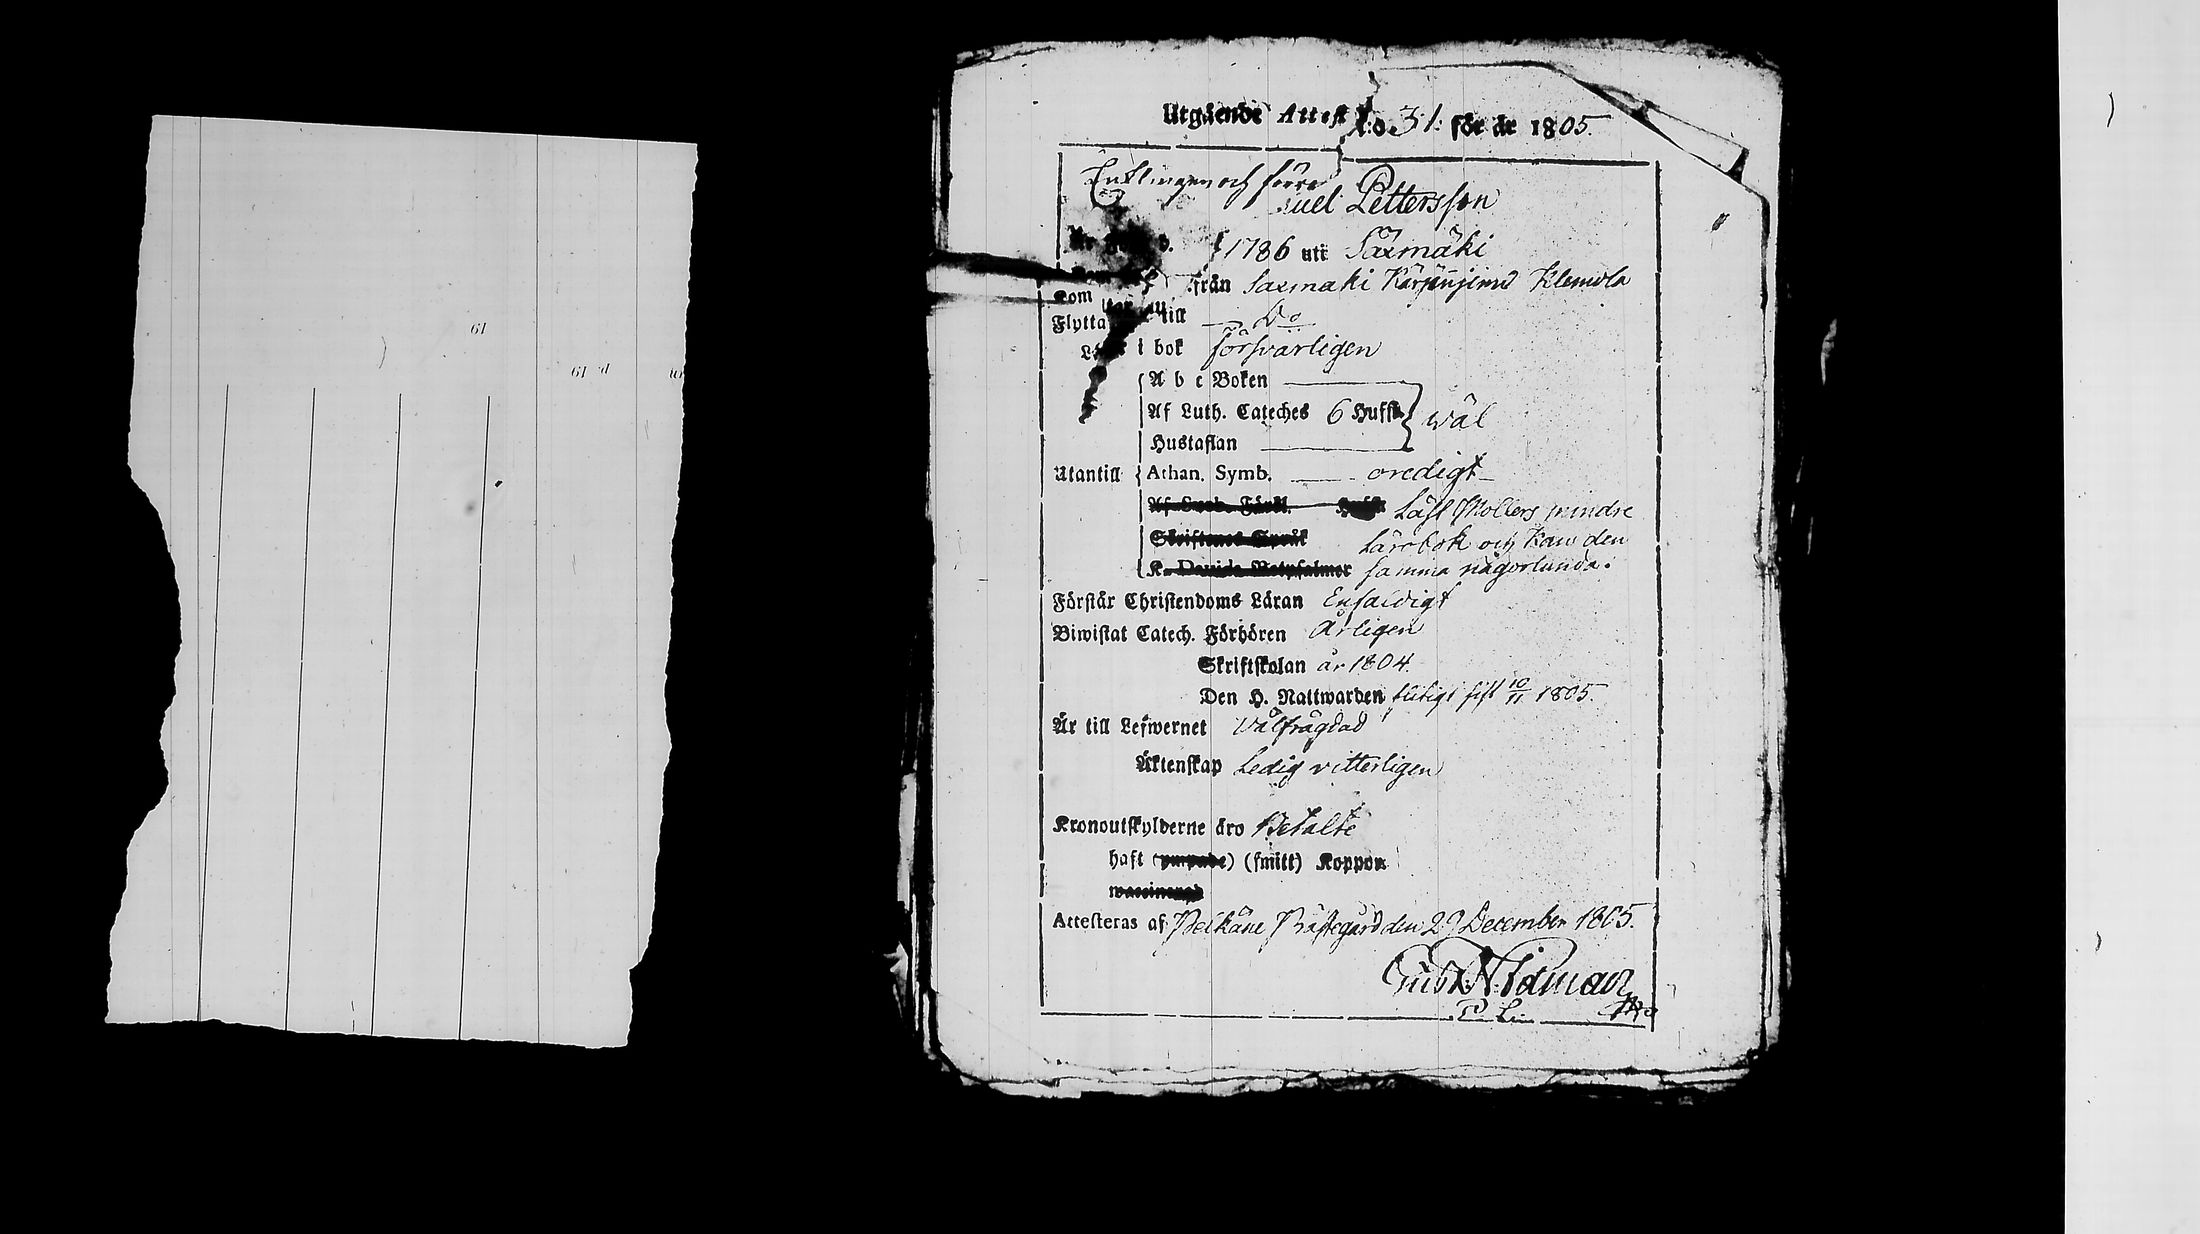 Utgående Attest N:o 31 för år 1805.
Ynklingen och förre
uel Pettersson
1786 uti Saxmäki
från Saxmäki Klemola
Kom
Flytta till Do
i bok försvarligen
A b c Boken
Af Luth. Cateches 6 Hufst. wäl
Hustaflan
Utantill Athan. Symb. oredigt
Af Sweb. Förkl. Hufst. Läst Mollers mindre
Skriftenes Språk Lärobok och kan den
K. Davids Botpsalmer samma någorlunda.
Förstår Christendoms Läran Enfaldigt
Biwistat Catech. Förhören Årligen
Skriftskolan år 1804.
Den H. Nattwarden flitigt sist 10/11 1805.
Är till Lefwernet Välfrägdad
Äktenskap Ledig vitterligen
Kronoutskylderne äro Betalte
haft (smitt) Koppor
waccinerad
Attesteras af Pelkäne Prästegård den 29 December 1805.
61
61